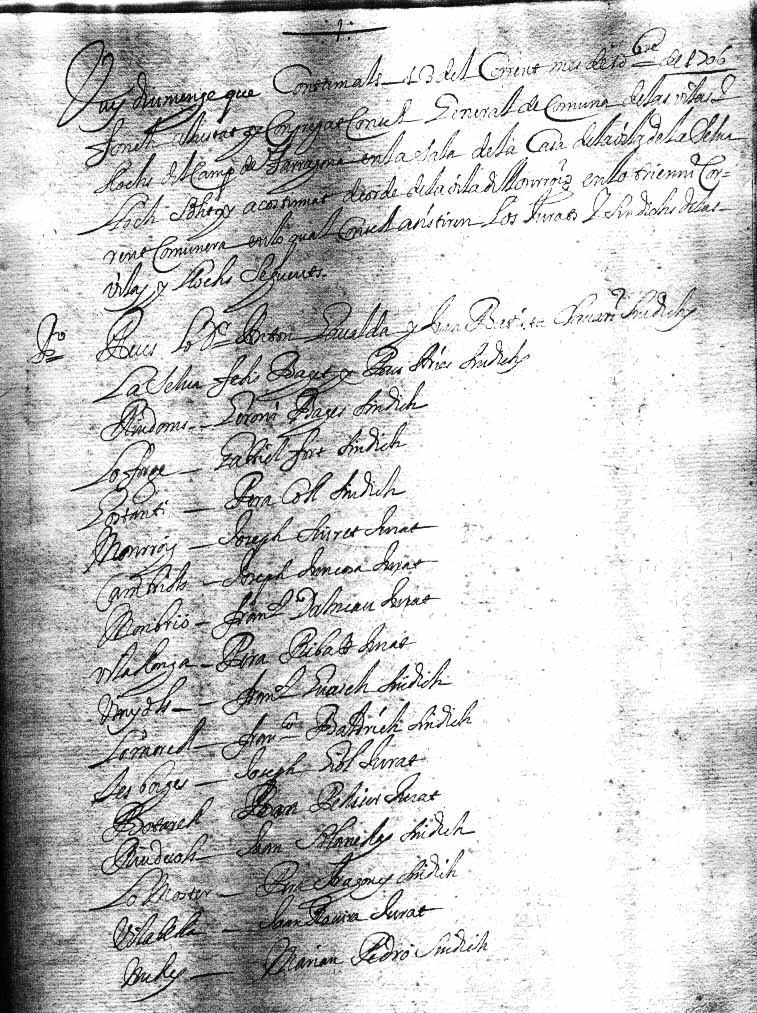 1
Vuy diumenge que Contam als 12 del Corrent mes de 10bre de 1706
fonch Ajustat y Congregat Consell General de Comuna de las vilas y
llochs del Camp de Tarragona en la Sala de la Casa de la vila de la Selva
Lloch y acostumat de orde de la vila de en lo trienni Cor-
rent Comunera en lo qual Consell asistiren los Jurats y Sindichs de las
vilas y llochs Seguents
Po Reus Lo Dr Anton y Juan Batista Sindichs
La Selva Felis Baget y Pau Aries Sindichs
Riudoms - Geroni Bages Sindich
Lo forge - Gabriel fort Sindich
Costanti - Pera Coll Sindich
Monrroig - Joseph Jurat
Cambrils - Joseph Jurat
Monbrio - Fran.ch Dalmau Jurat
vilallonga - Pera Ribas Jurat
Vinyols - Fran.ch Guasch Sindich
Lo morell - Fran.co Baldrich Sindich
Les borges - Joseph Gibl Jurat
Botarell Juan Pelicer Jurat
Riudecols - Juan Sindich
Lo Moster - Pera Sindich
Vilabella - Juan Rovira Jurat
- Marian Pedro Sindich